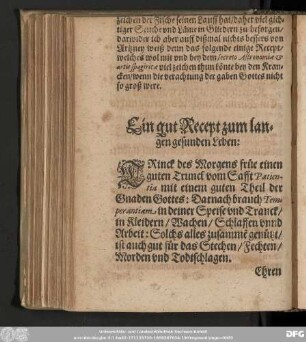 zeichen der Fische seinen Lauff hat/daher viel gich-
tiger Seuche und Läme in Glidern zu besorgen/
darwider ich aber auff dißmal nichts bessers von
Artzney weiß denn das folgende einige Recept/
welches wol mit und bey dem secreto Asteromiae &
artis spagiricae viel zeichen thun könte bey den Kran-
cken/wenn die verachtung der gaben Gottes nicht
so groß were.
Ein gut Recept zum lan-
gen gesunden Leben:
TRinck des Morgens früe einen
guten Trunck vom Safft Patien-
tia mit einem guten Theil der
Gnaden Gottes: Darnach brauch Tem-
perantiam, in deiner Speise vnd Tranck/
in Kleidern/Wachen/Schlaffen vnnd
Arbeit: Solchs alles zusamme genützt/
ist auch gut für das Stechen/Fechten/
Morden vnd Todtschlagen.
Ehren